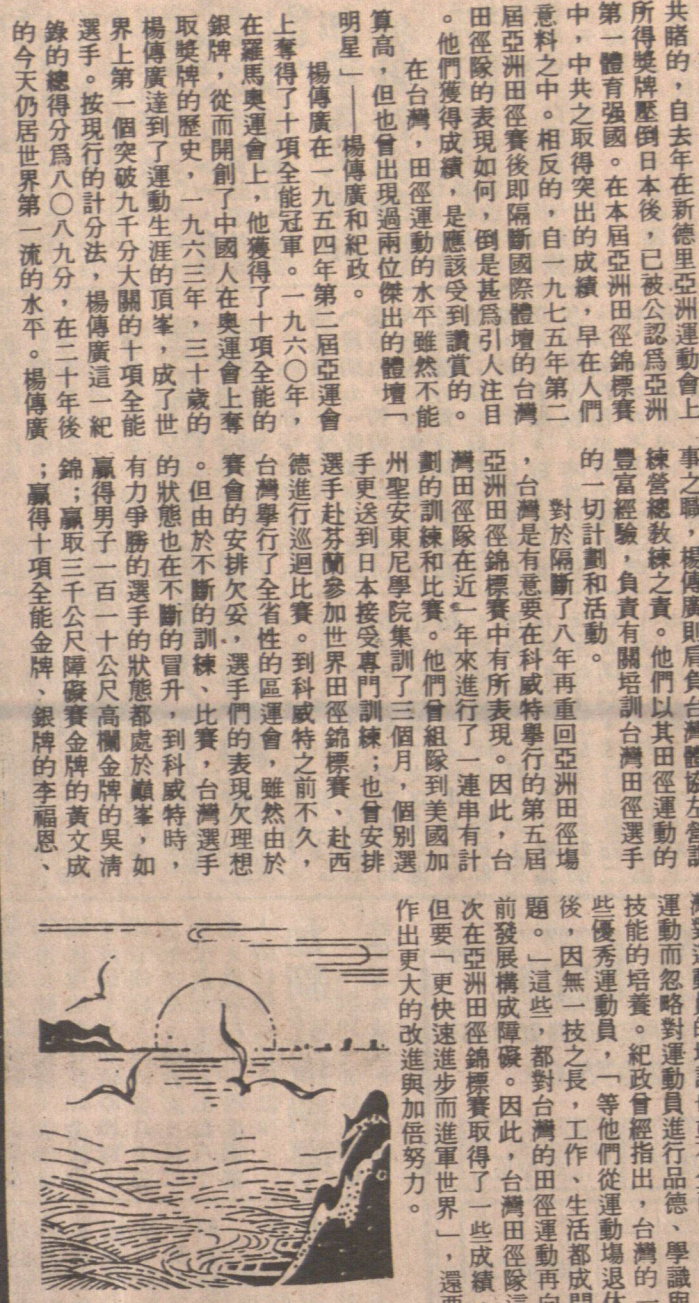 共睹的，自去年在新德里亞洲運動會上
所得獎牌壓倒日本後，已被公認爲亞洲
第一體育强國。在本屆亞洲田徑錦標賽
中，中共之取得突出的成績，早在人們
意料之中。相反的，自一九七五年第二
屆亞洲田徑賽後即隔斷國際體壇的台灣
田徑隊的表現如何，倒是甚爲引人注目
。他們獲得成績，是應該受到讚賞的。
在台灣，田徑運動的水平雖然不能
算高，但也曾出現過兩位傑出的體壇「
明星」——楊傳廣和紀政。
楊傳廣在一九五四年第二屆亞運會
上奪得了十項全能冠軍。一九六〇年，
在羅馬奧運會上，他獲得了十項全能的
銀牌，從而開創了中國人在奧運會上奪
取獎牌的歷史，一九六三年，三十歲的
楊傳廣達到了運動生涯的頂峯，成了世
界上第一個突破九千分大關的十項全能
選手。按現行的計分法，楊傳廣這一紀
錄的總得分爲八〇八九分，在二十年後
的今天仍居世界第一流的水平。楊傳廣
事之職，楊傳廣則肩負台灣體協左營訓
練營總教練之責。他們以其田徑運動的
豐富經驗，負責有關培訓台灣田徑選手
的一切計劃和活動。
對於隔斷了八年再重回亞洲田徑場
，台灣是有意要在科威特舉行的第五屆
亞洲田徑錦標賽中有所表現。因此，台
灣田徑隊在近一年來進行了一連串有計
劃的訓練和比賽。他們曾組隊到美國加
州聖安東尼學院集訓了三個月，個別選
手更送到日本接受專門訓練；也曾安排
選手赴芬蘭參加世界田徑錦標賽、赴西
德進行巡迴比賽。到科威特之前不久，
台灣舉行了全省性的區運會，雖然由於
賽會的安排欠妥，選手們的表現欠理想
。但由於不斷的訓練、比賽，台灣選手
的狀態也在不斷的冒升，到科威特時，
有力爭勝的選手的狀態都處於巔峯，如
贏得男子一百一十公尺高欄金牌的吳淸
錦；贏取三千公尺障礙賽金牌的黃文成
；贏得十項全能金牌、銀牌的李福恩、
運動而忽略對運動員進行品德、學識與
技能的培養。紀政曾經指出，台灣的一
些優秀運動員，「等他們從運動場退休
後，因無一技之長，工作、生活都成問
題。」這些，都對台灣的田徑運動再向
前發展構成障礙。因此，台灣田徑隊這
次在亞洲田徑錦標賽取得了一些成績
但要「更快速進步而進軍世界」，還要
作出更大的改進與加倍努力。